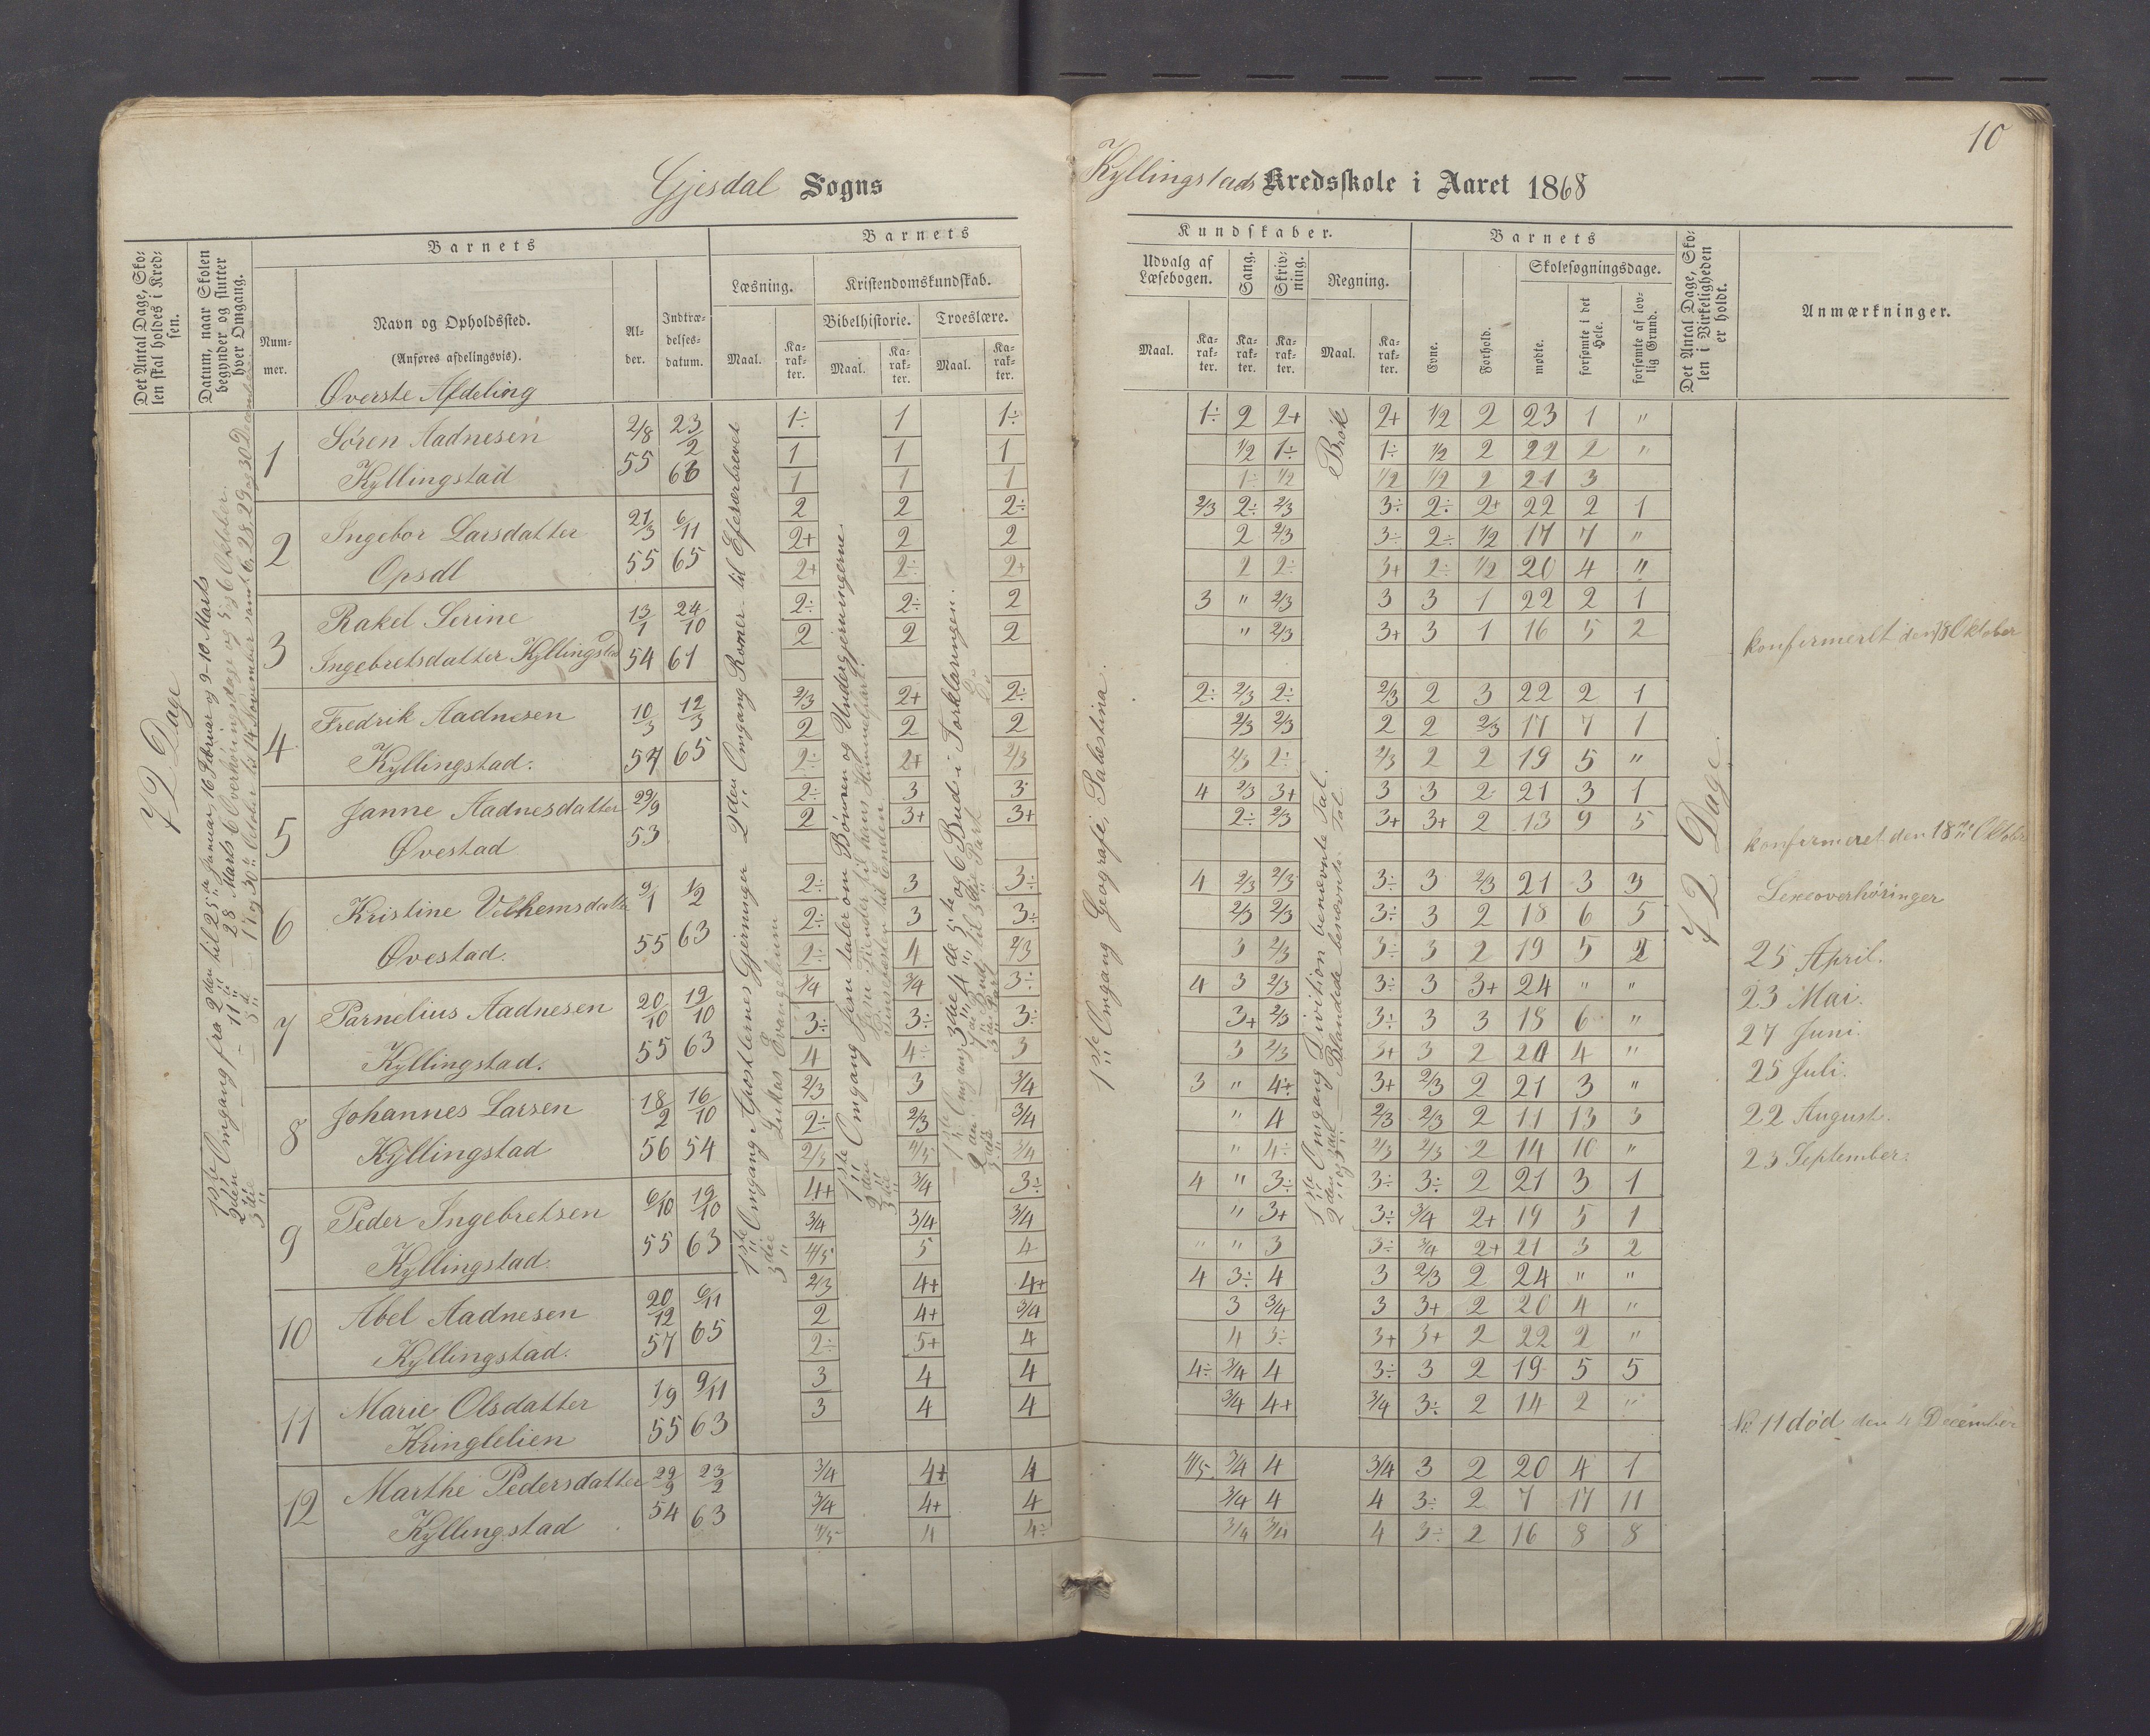 10
Gjesdal Sogns
Kyllingstads Kredsskole i Aaret 1868
Det Antal Dage, Sko-
len skal holdes i Kred-
sen.
Datum, naar Skolen
begynder og slutter
hver Omgang.
Barnets
Num-
mer.
Navn og Opholdssted.
(Anføres afdelingsvis).
Øverste Afdeling
Al-
der.
Indtræ-
delses-
datum.
Barnets
Læsning.
Maal.
Ka-
rak-
ter.
Kristendomskundskab.
Bibelhistorie.
Maal.
Ka-
rak-
ter.
Troeslære.
Maal.
Ka-
rak-
ter.
Kundskaber.
Udvalg af
Læsebogen.
Maal.
Ka-
rak-
ter.
Sang.
Ka-
rak-
ter.
Skriv-
ning.
Ka-
rak-
ter.
Regning.
Maal.
Ka-
rak-
ter.
Barnets
Evne.
Forhold.
Skolesøgningsdage.
mødte.
forsømte i det
Hele.
forsømte af lov-
lig Grund.
Det Antal Dage, Sko-
len i Virkeligheden
er holdt.
Anmærkninger.
72 Dage
1ste Omgang fra 2den til 25de Januar, 16 Februar og 9-10 Marts
2den
3die
1 Søren Aadnesen 2/8 23/2
Kyllingstad 55 63
2 Ingebor Larsdatter 21/3 6/11
Opsdl 55 65
3 Rakel Serine 13/1 24/10
Ingebretsdatter Kyllingstad 54 61
4 Fredrik Aadnesen 10/3 12/3
Kyllingstad. 57 65
5 Janne Aadnesdatter 29/9
Øvestad 53
6 Kristine Velhemsdatter 9/1 1/2
Øvestad. 55 63
7 Parnelius Aadnesen 20/10 19/10
Kyllingstad. 55 63
8 Johannes Larsen 18/2 16/10
Kyllingstad 56 54
9 Peder Ingebretsen 6/10 19/10
Kyllingstad 55 63
10 Abel Aadnesen 20/12 6/11
Kyllingstad. 57 65
11 Marie Olsdatter 1/9 9/11
Kringlelien 55 63
12 Marthe Pedersdatter 29/9 23/2
Kyllingstad 54 63
1ste Omgang Apostlernes Gjerninger 2den Omgang Romer- til Efeserbrevet
3die Lukas Evangelium
1ste Omgang Jesu taler om Bønnen og Undergjerningerne
1ste Omgang 3die 4de 5te og 6 Bud i Forklaringen.
1ste Omgang Geografi, Palæstina.
1ste Omgang Division benævnte Tal.
Blandede benævnte Tal.
Brøk
1÷ 1 1÷ 1÷ 2 2+ 2+ 1/2 2 23 1 "
1 1 1 1/2 1÷ 1÷ 1/2 2 22 2 "
1 1 1 1÷ 1/2 1/2 1/2 2 21 3
2 2 2÷ 2/3 2÷ 2/3 3÷ 2÷ 2+ 22 2 1
2+ 2 2 2 2/3 3÷ 2÷ 1/2 17 7 "
2+ 2÷ 2+ 2 2÷ 3+ 2÷ 1/2 20 4 "
2÷ 2÷ 2 3 " 2/3 3 3 1 22 2 1
2 2 2 " 2/3 3+ 3 1 16 5 2
2/3 2+ 2÷ 2÷ 2/3 2÷ 2/3 2 3 22 2 1
2 2 2 2/3 2/3 2 2 2/3 17 7 1
2÷ 2+ 2/3 2/3 2÷ 2/3 2 2 19 5 "
2÷ 3 3 4 2/3 3+ 3 3 2 21 3 1
2 3+ 3+ 2÷ 2/3 3+ 3+ 2 13 9 5
2÷ 3 3÷ 4 2/3 2/3 3÷ 3 2/3 21 3 3
2÷ 3 3÷ 2/3 2/3 3÷ 3 2 18 6 5
2÷ 4 2/3 3 2/3 3÷ 3 2 19 5
3/4 3/4 3÷ 4 3 2/3 3÷ 3 3+ 24 " "
3÷ 3÷ 3÷ 3+ 2/3 3÷ 3 3 18 6 "
4 4÷ 3 3 2/3 3+ 3 2 20 4 "
2/3 3 3/4 3 " 4+ 3+ 2/3 2 21 3 "
2÷ 2/3 3/4 " 4 2/3 2/3 2 11 13 3
2/3 3/4 " 4÷ 2/3 2/3 2 14 10 "
4+ 3/4 3÷ 4 " 3÷ 3÷ 3÷ 2 21 3 1
3/4 3/4 3/4 " 3+ 3÷ 3/4 2+ 19 5 1
4/5 5 4 " " 3 3÷ 3/4 2+ 21 3 2
2/3 4+ 4+ 4 3÷ 4 3 2/3 2 24 " "
2 4+ 3/4 3 3/4 3 3+ 2 20 4 "
2÷ 5+ 4 4 3÷ 3+ 3+ 2 22 2 "
3 4 4 4÷ 3/4 4 3÷ 3 2 19 5 5
3 4 4 3/4 4+ 3/4 3÷ 2 14 2 "
3/4 4+ 4 4/5 3/4 4 3/4 3 2 20 4 1
3/4 4+ 4 3/4 4 4 3÷ 2 7 17 11
4/5 4 4÷ 3/4 3/4 4 3÷ 2 16 8 8
72 Dage.
konfirmeret den 18 Oktober
konfirmeret den 18de Oktober
Lexeoverhøringer
25 April.
23 Mai.
27 Juni.
25 Juli.
22 August.
23 September.
No. 11 død den 4 December